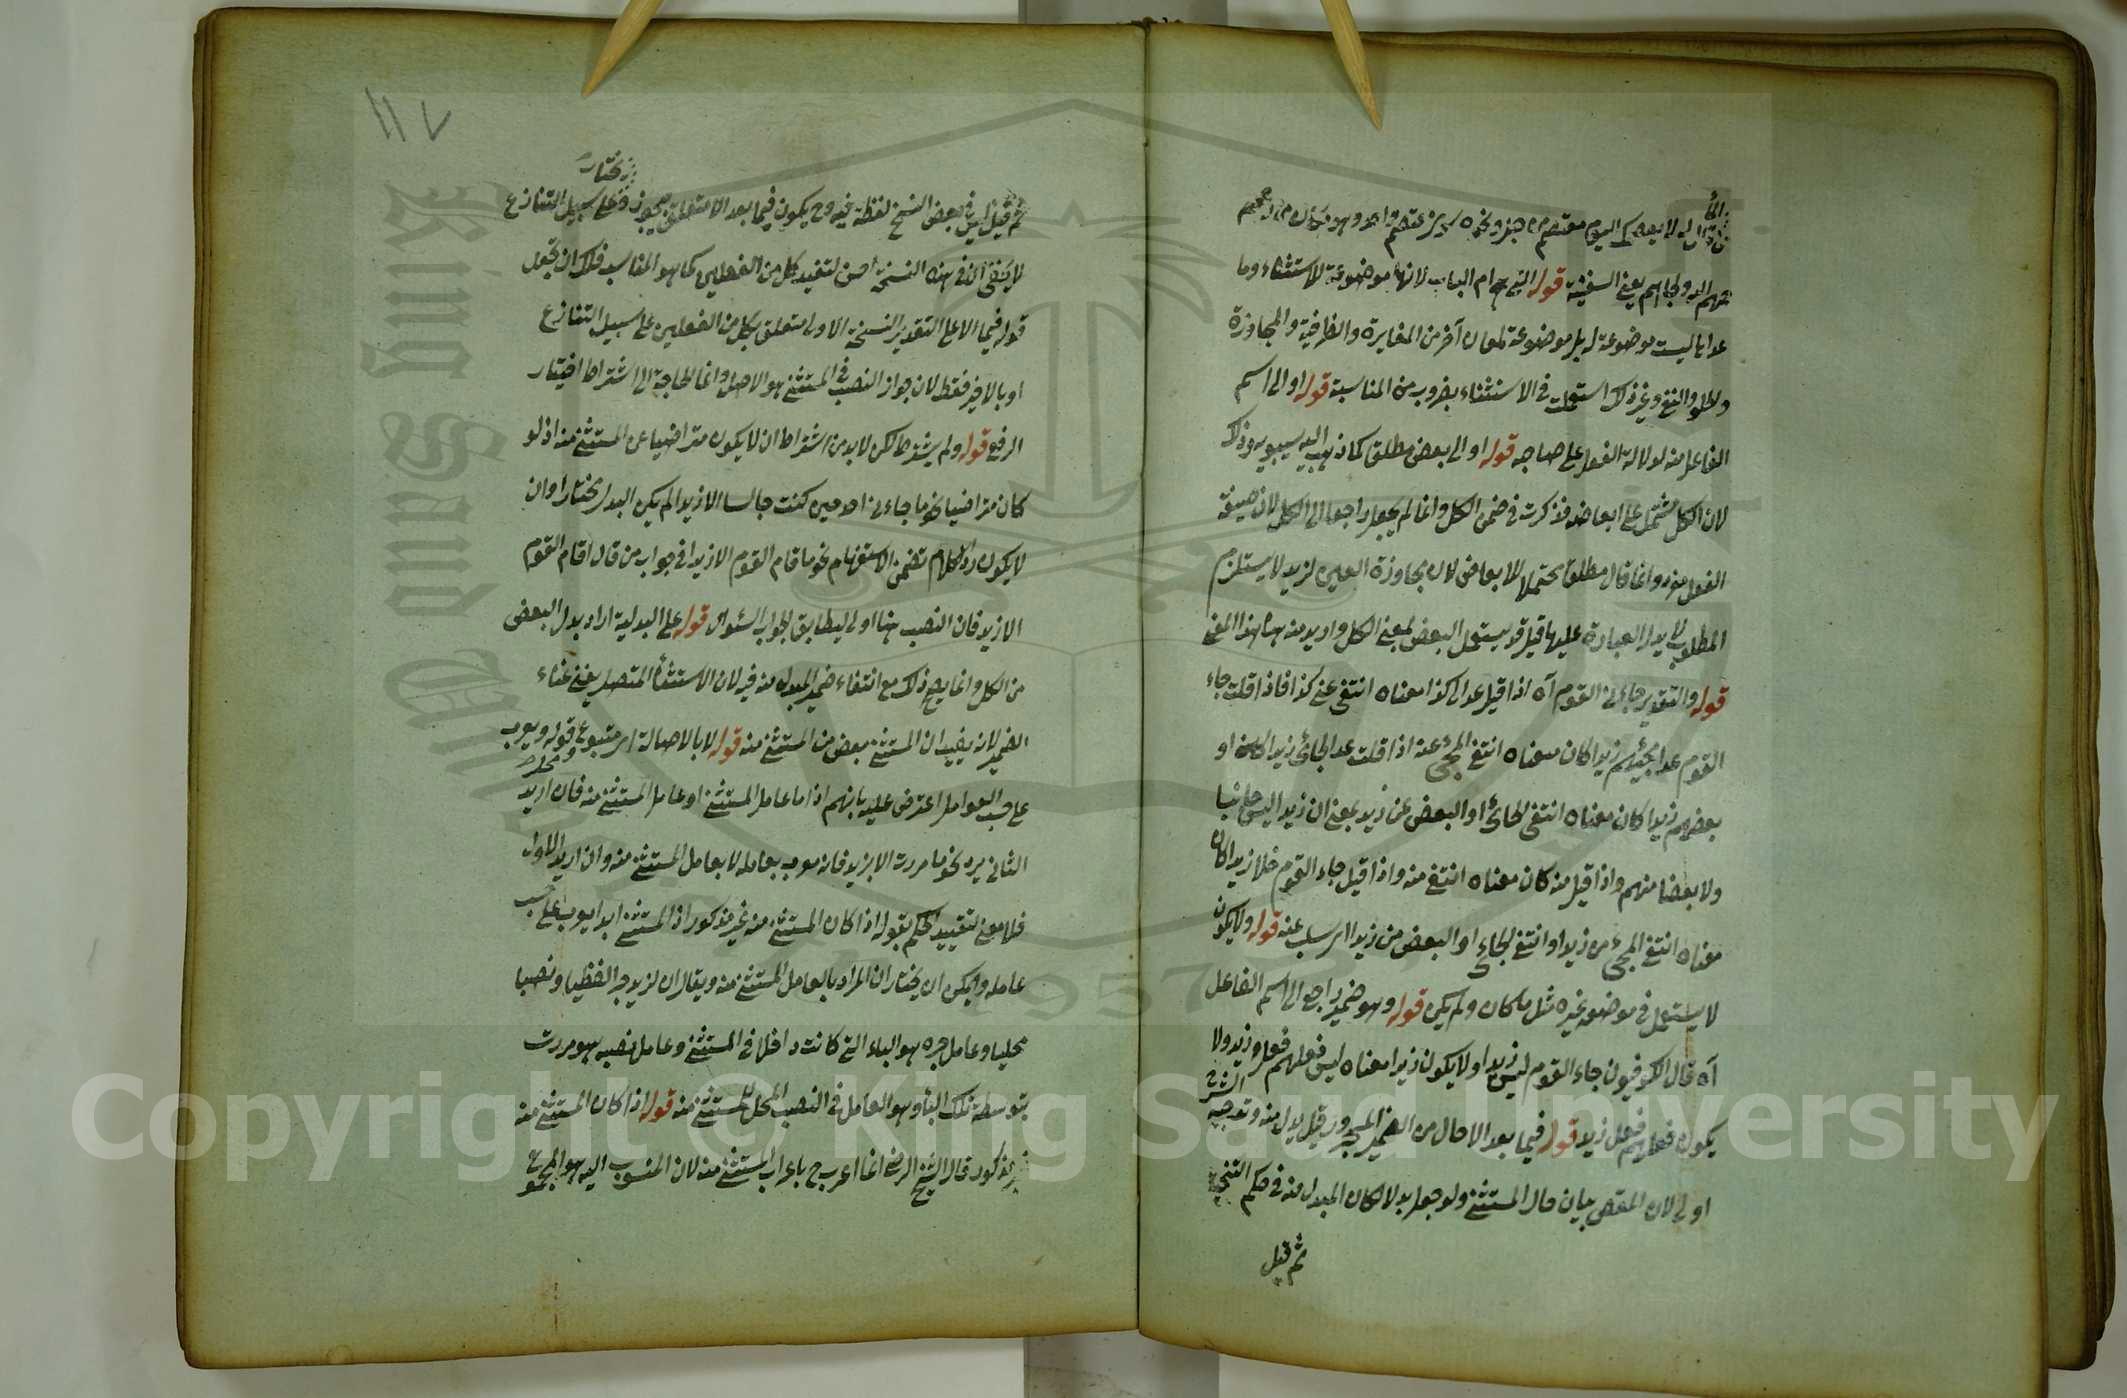 عدا ما ليست موضوعة له بل موضوعة لمعان آخر من المغايرة والظرفية والمجاوزة
والخلو والنفي وغير ذلك استعملت في الاستثناء بضروب من المناسبة قوله او الى اسم
الفاعل منه لدلالة الفعل على صاحبه قوله او الى بعض مطلق كما ذهب اليه سيبويه وذلك
لان الكل مشتمل على ابعاضه فذكرت في ضمن الكل وانما لم يجعل راجعا الى الكل لان صيغة
الفعل مفرد وانما قال مطلق يحتمل الابعاض لان مجاوزة المعين لزيد لا يستلزم
المطلوب لا يدل العبارة عليها قيل قد يستعمل البعض بمعنى الكل واريد منه ههنا هذا المعنى
قوله والتقدير جاءني القوم آه اذا قيل عدا كذا معناه انتفى عن كذا فاذا قلت جاء
القوم عدا مجيئهم زيدا كان معناه انتفى المجئ عنه اذا قلت عدا الجائي زيدا كان او
بعضهم زيدا كان معناه انتفى الجائي او البعض عن زيد بمعنى ان زيدا ليس جائيا
ولا بعضا منهم واذا قيل منه كان معناه انتفى منه واذا قيل جاء القوم خلا زيدا كان
معناه انتفى المجئ من زيد او انتفى الجائي او البعض من زيد اي سلب عنه قوله ولا يكون
لا يستعمل في موضعه غيره مثل ما كان ولم يكن قوله وهو ضمير راجع الى اسم الفاعل
آه قال الكوفيون جاء القوم ليس زيدا ولا يكون زيدا معناه ليس فعلهم فعل زيد ولا
يكون فعلهم فعل زيد قوله فيما بعد الا حال من الضمير المجرور قيل بدل منه وتوجيه الشرح
اولى لان المقص بيان حال المستثنى ولو جعل بدلا لكان المبدل منه في حكم التنحية
ثم قيل
١١٧
ثم قيل ليس في بعض النسخ لفظة فيه وح يكون فيما بعد الا متعلق بيجوز ويختار على سبيل التنازع
لا يخفى ان في هذه النسخة احسن لتقييد كل من الفعلين كما هو المناسب فلك ان تجعل
قوله فيما الا على التقدير النسخة الاولى متعلق بكل من الفعلين على سبيل التنازع
او بالاخير فقط لان جواز النصب في المستثنى هو الاصل وانما الحاجة الى اشتراط اختيار
الرفع قوله ولم يشترط لكن لا بد من اشتراط ان لا يكون متراضيا عن المستثنى منه اذ لو
كان متراضيا نحو ما جاءني احد حين كنت جالسا الا زيدا لم يكن البدل مختارا وان
لا يكون رد الكلام تضمن الاستفهام نحو ما قام القوم الا زيدا في جواب من قال اقام القوم
الا زيد فان النصب ههنا اولى ليطابق الجواب السئوال قوله على البدلية اراد بدل البعض
من الكل وانما يصح ذلك مع انتفاء ضمير المبدل منه فيه لان الاستثناء المتصل يغني غناء
الضمير لانه يفيد ان المستثنى بعض من المستثنى منه قوله لا بالاصالة اي متبوع قوله ويعرب
على حسب العوامل اعترض عليه بانهم اذا ما عامل المستثنى او عامل المستثنى منه فان اريد
الثاني يرد نحو ما مررت الا بزيد فانه معرب بعامله لا بعامل المستثنى منه وان اريد الاول
فلا معنى لتقييد الحكم بقوله اذا كان المستثنى منه غير مذكور اذ المستثنى ابدا يعرب على حسب
عامله ويمكن ان يختار ان المراد بالعامل المستثنى منه ويقال ان لزيد جرا لفظيا ونصبا
محليا وعامل جره هو الباء التي كانت داخلا في المستثنى وعامل نصبه هو مررت
بتوسطة تلك الباء وهو العامل في النصب المحل للمستثنى منه قوله اذا كان المستثنى منه
غير مذكور قال الشيخ الرضي انما اعرب ح باعراب المستثنى منه لان المنسوب اليه هو المجموع
Copyright © King Saud University
King Saud University
1957